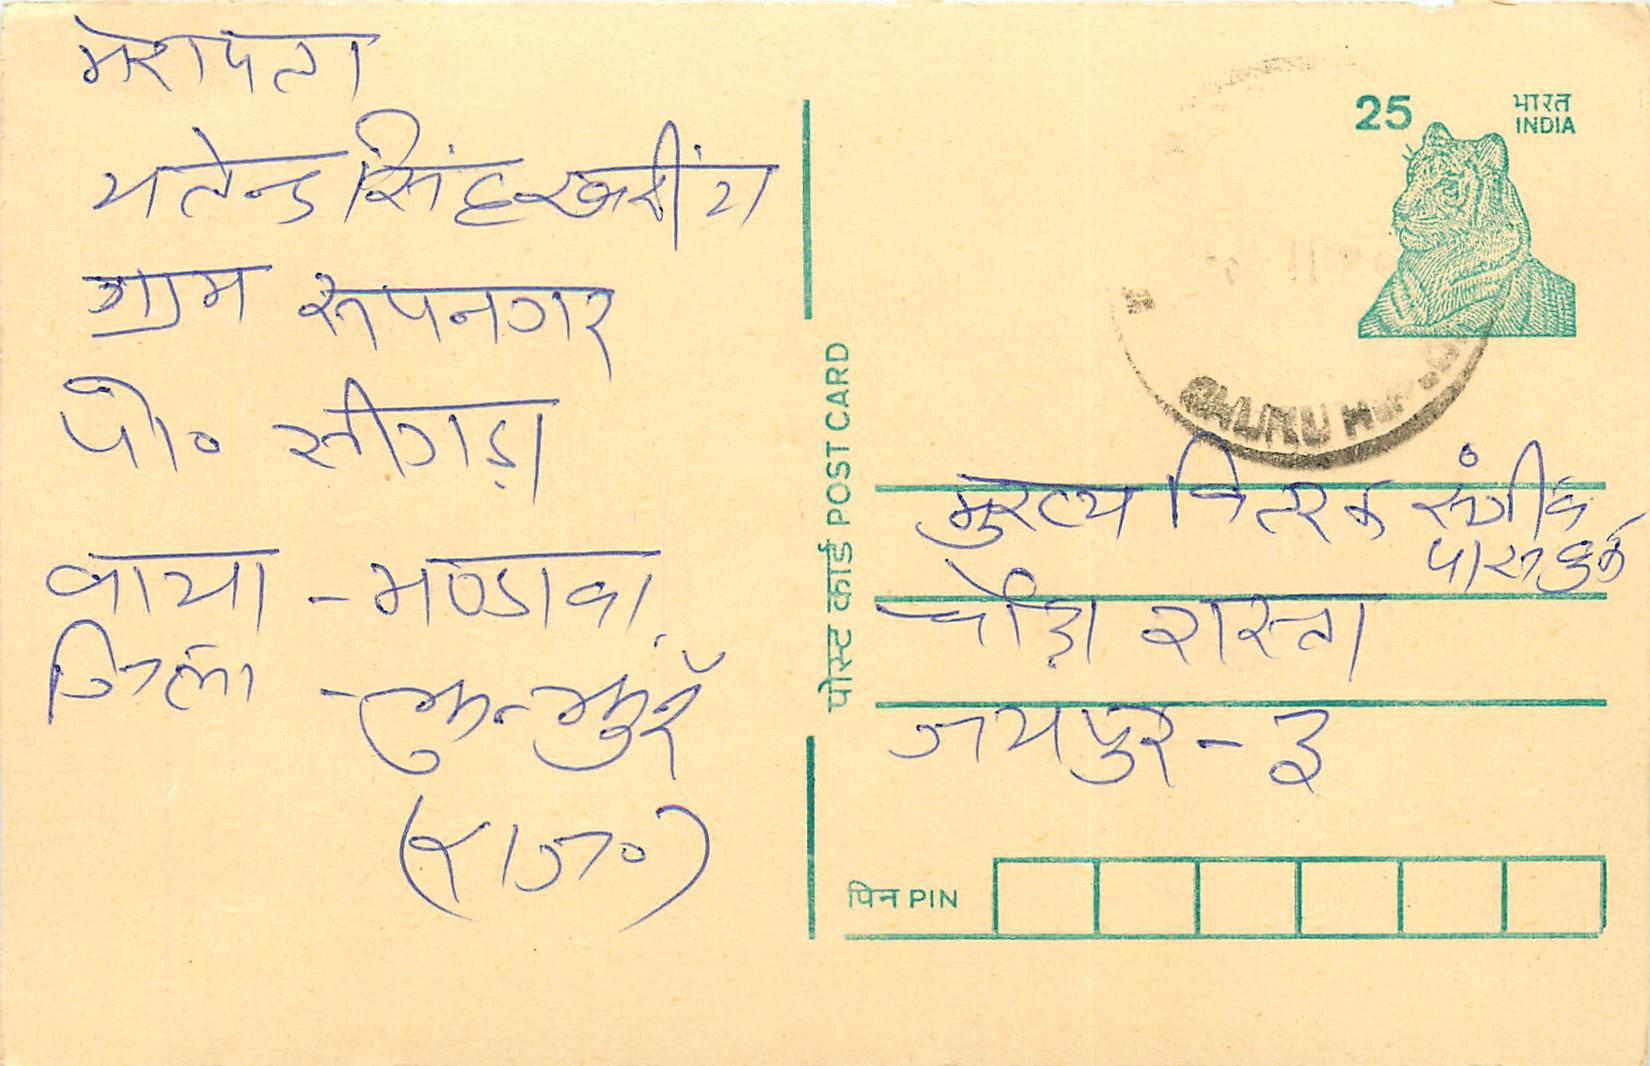 मेरा पता
यतेन्द्र सिंह
ग्राम रूपनगर
पो० सीगड़ा
वाया - मण्डावा
जिला - झुन्झुनूँ
(राज०)
25
भारत
INDIA
पोस्ट कार्ड POST CARD
मुख्य वितरक संजीव
पास बुक
चौड़ा रास्ता
जयपुर - 3
पिन PIN